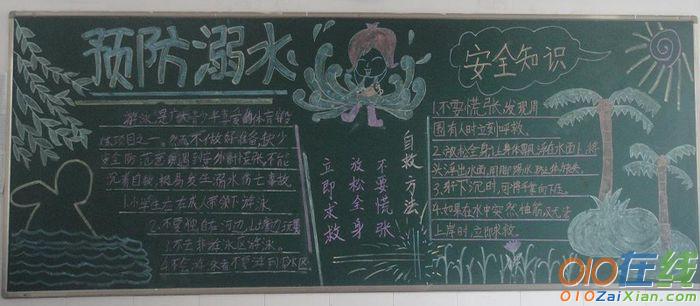 预防溺水
游泳是广大青少年喜爱的体育锻
炼项目之一。然而不做好准备缺少
安全防范意识遇到意外时慌张不能
沉着自救极易发生溺水伤亡事故
1.小学生应在成人带领下游泳
2.不要独自在河边、山塘边玩耍
3.不去非游泳区游泳。
4.不会游泳者不要游到深水区
自救方法
不要慌张
放松全身
立即求救
安全知识
1.不要慌张发现周
围有人时立刻呼救。
2.放松全身让身体飘浮在水面上将
头浮出水面用脚踢水
3.身体下沉时可将手掌向下压。
4.如果在水中突然抽筋又无法
上岸时,立即求救。
010在线
010ZaiXian.com